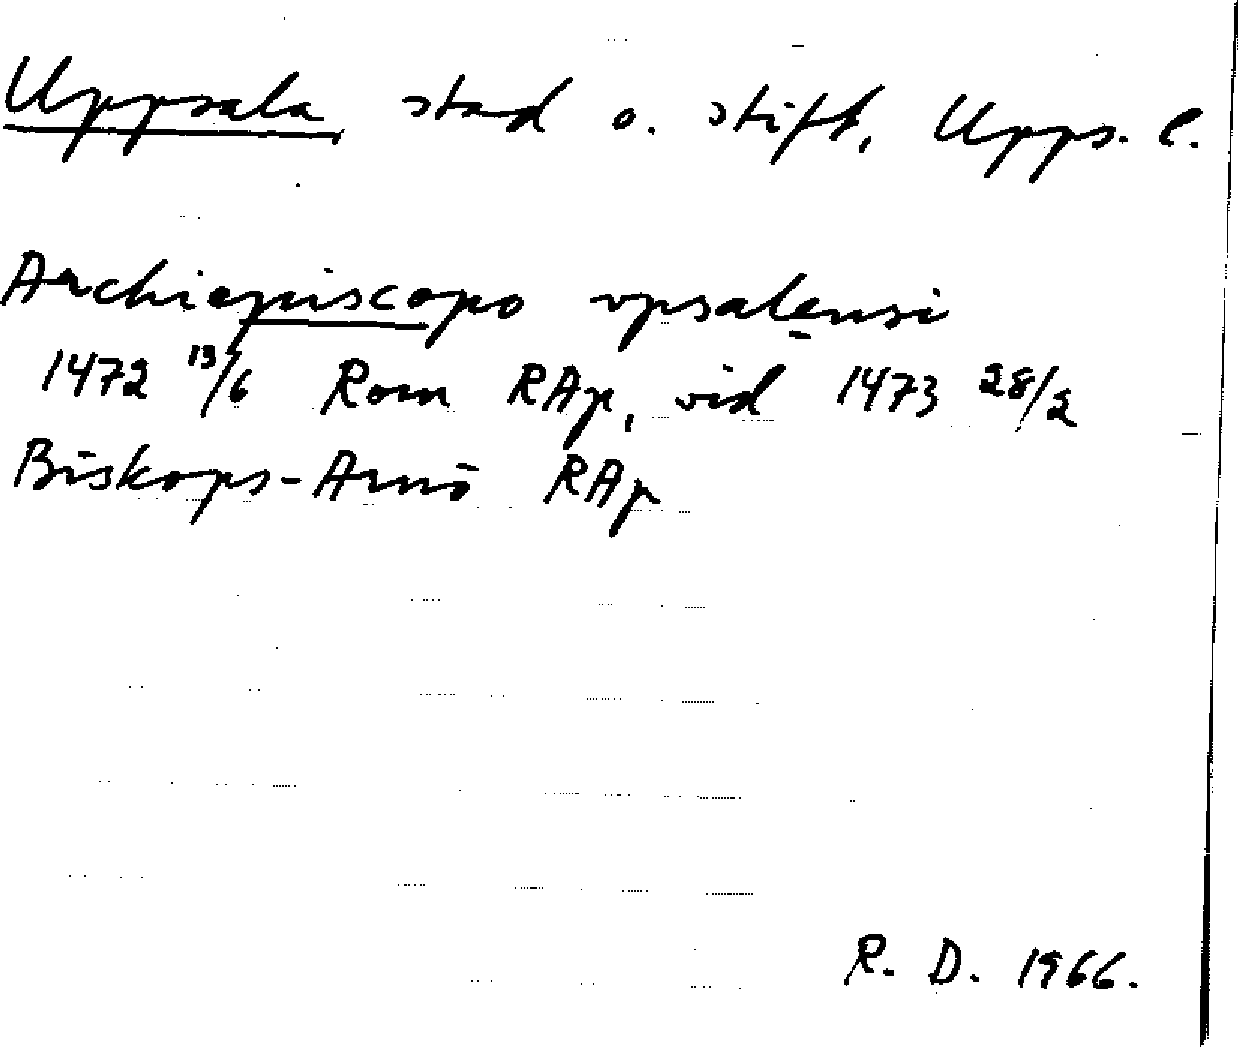 Uppsala stad o. stift, Upps. l.
Archiepiscopo vpsalensi
1472 13/6 Rom RAp, vid 1473 28/2
Biskops-Arnö RAp
R. D. 1966.